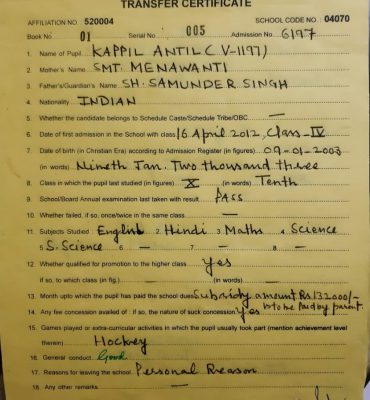 TRANSFER CERTIFICATE
AFFILIATION NO 520004 SCHOOL CODE NO : 04070
Book No 01 Serial No 005 Admission No 6197
1. Name of Pupil KAPPIL ANTIL ( V-1197)
2. Mother's Name SMT. MENAWANTI
3. Father's/Guardian's Name SH. SAMUNDER SINGH
4. Nationality INDIAN
5. Whether the candidate belongs to Schedule Caste/Schedule Tribe/OBC —
6. Date of first admission in the School with class 16 April 2012, Class-IV
7. Date of birth (in Christian Era) according to Admission Register (in figures) 09-01-2003
(in words) Nineth Jan. Two thousand three
8. Class in which the pupil last studied (in figures) X (in words) Tenth
9. School/Board Annual examination last taken with result PASS
10. Whether failed, if so, once/twice in the same class —
11. Subjects Studied : English 2. Hindi 3. Maths 4. Science
5. S. Science 6. — 7. — 8. —
12. Whether qualified for promotion to the higher class Yes
if so, to which class (in fig.) — (in words) —
13. Month upto which the pupil has paid the school dues Subsidy amount Rs 132000/-
14. Any fee concession availed of : if so, the nature of such concession Yes to be paid by parent.
15. Games played or extra-curricular activities in which the pupil usually took part (mention achievement level
therein) Hockey
16. General conduct Good
17. Reasons for leaving the school Personal Reason
18. Any other remarks —